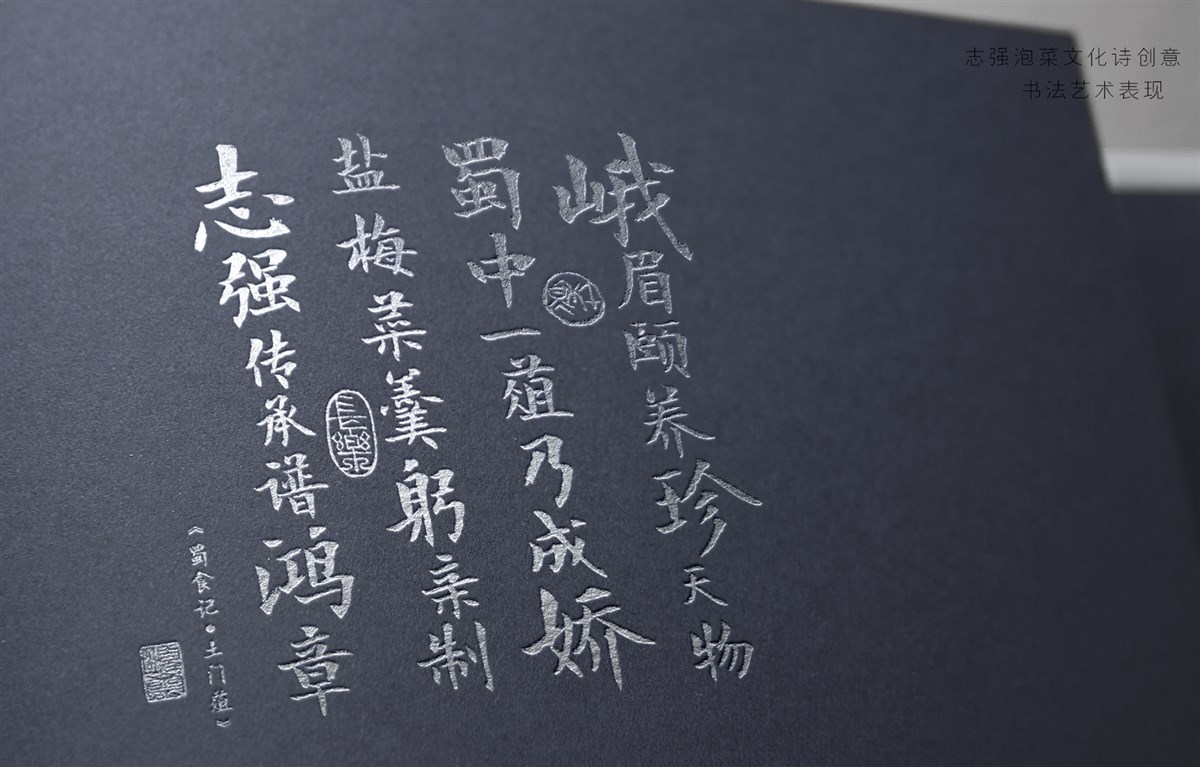 志强泡菜文化诗创意
书法艺术表现
峨眉颐养珍天物
蜀中一菹乃成娇
盐梅菜羹躬亲制
志强传承谱鸿章
《蜀食记·土门菹》
長樂